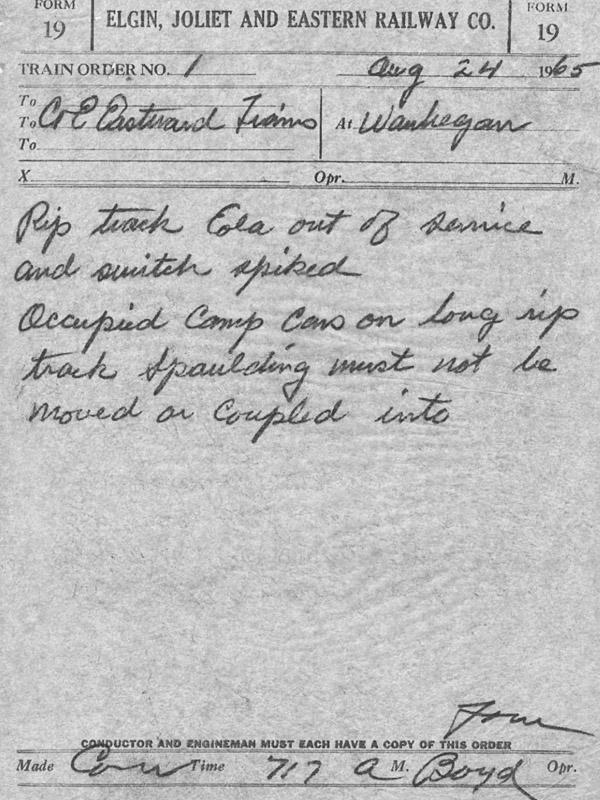 FORM 19 ELGIN, JOLIET AND EASTERN RAILWAY CO. FORM 19
TRAIN ORDER NO. 1 Aug 24 1965
To
To C&E Eastward Trains At Waukegan
To
X Opr. M.
Rip track Eola out of service
and switch spiked
Occupied Camp Cars on long rip
track Spaulding must not be
moved or Coupled into
CONDUCTOR AND ENGINEMAN MUST EACH HAVE A COPY OF THIS ORDER
Made Com Time 717 A M. Boyd Opr.